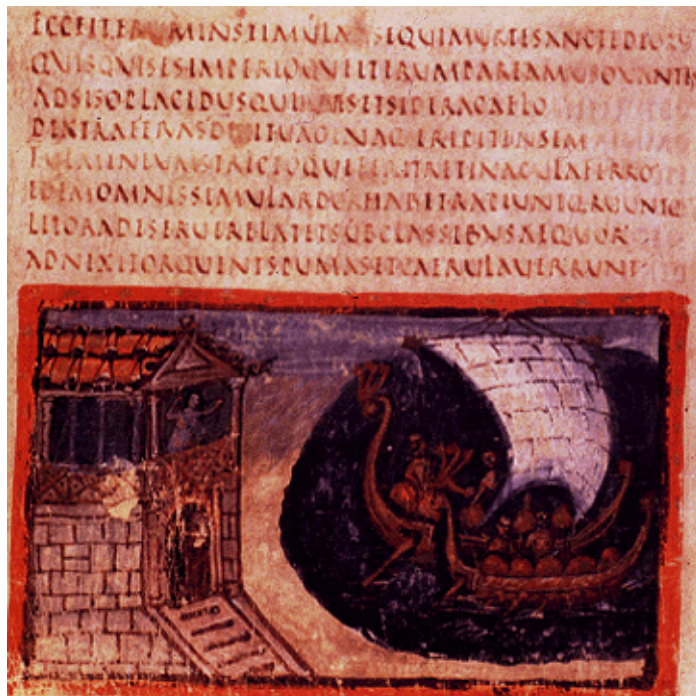 ECCEITERUMINSTIMULATSEQUIMURTESANCTEDEORU
QUISQUISESIMPERIOQUEITERUMPAREAMUSOVANTE
ADSISOPLACIDUSQUEIUVESETSIDERACAELO
DEXTRAFERASDIXITVAGINAQ ERIPITENSEM
FULMINEUMSTRICTOQUEFERITRETINACULAFERRO
IDEMOMNISSIMULARDORHABETRAPIUNTQ RUUNTQ
LITORADESERUERELATETSUBCLASSIBUSAEQUOR
ADNIXITORQUENTSPUMASETCAERULAVERRUNT